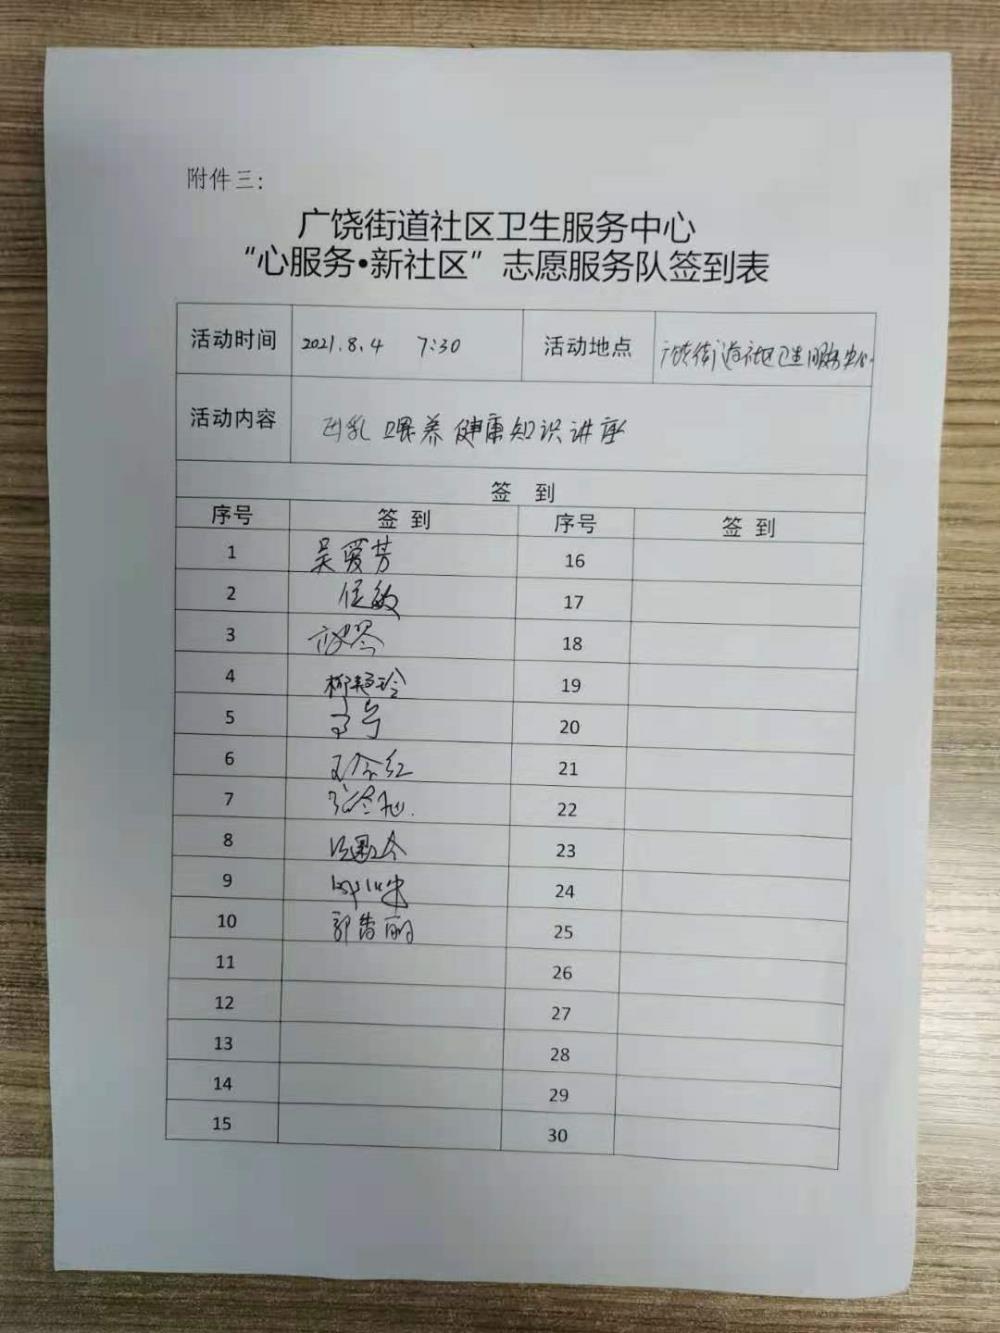 附件三：
广饶街道社区卫生服务中心
“心服务•新社区”志愿服务队签到表
活动时间 2021.8.4 7:30 活动地点 广饶街道社区卫生服务中心
活动内容 母乳喂养健康知识讲座
签 到
序号 签 到 序号 签 到
1 吴爱芳 16
2 任敏 17
3 18
4 柳艳玲 19
5 20
6 21
7 22
8 23
9 24
10 郭吉丽 25
11 26
12 27
13 28
14 29
15 30